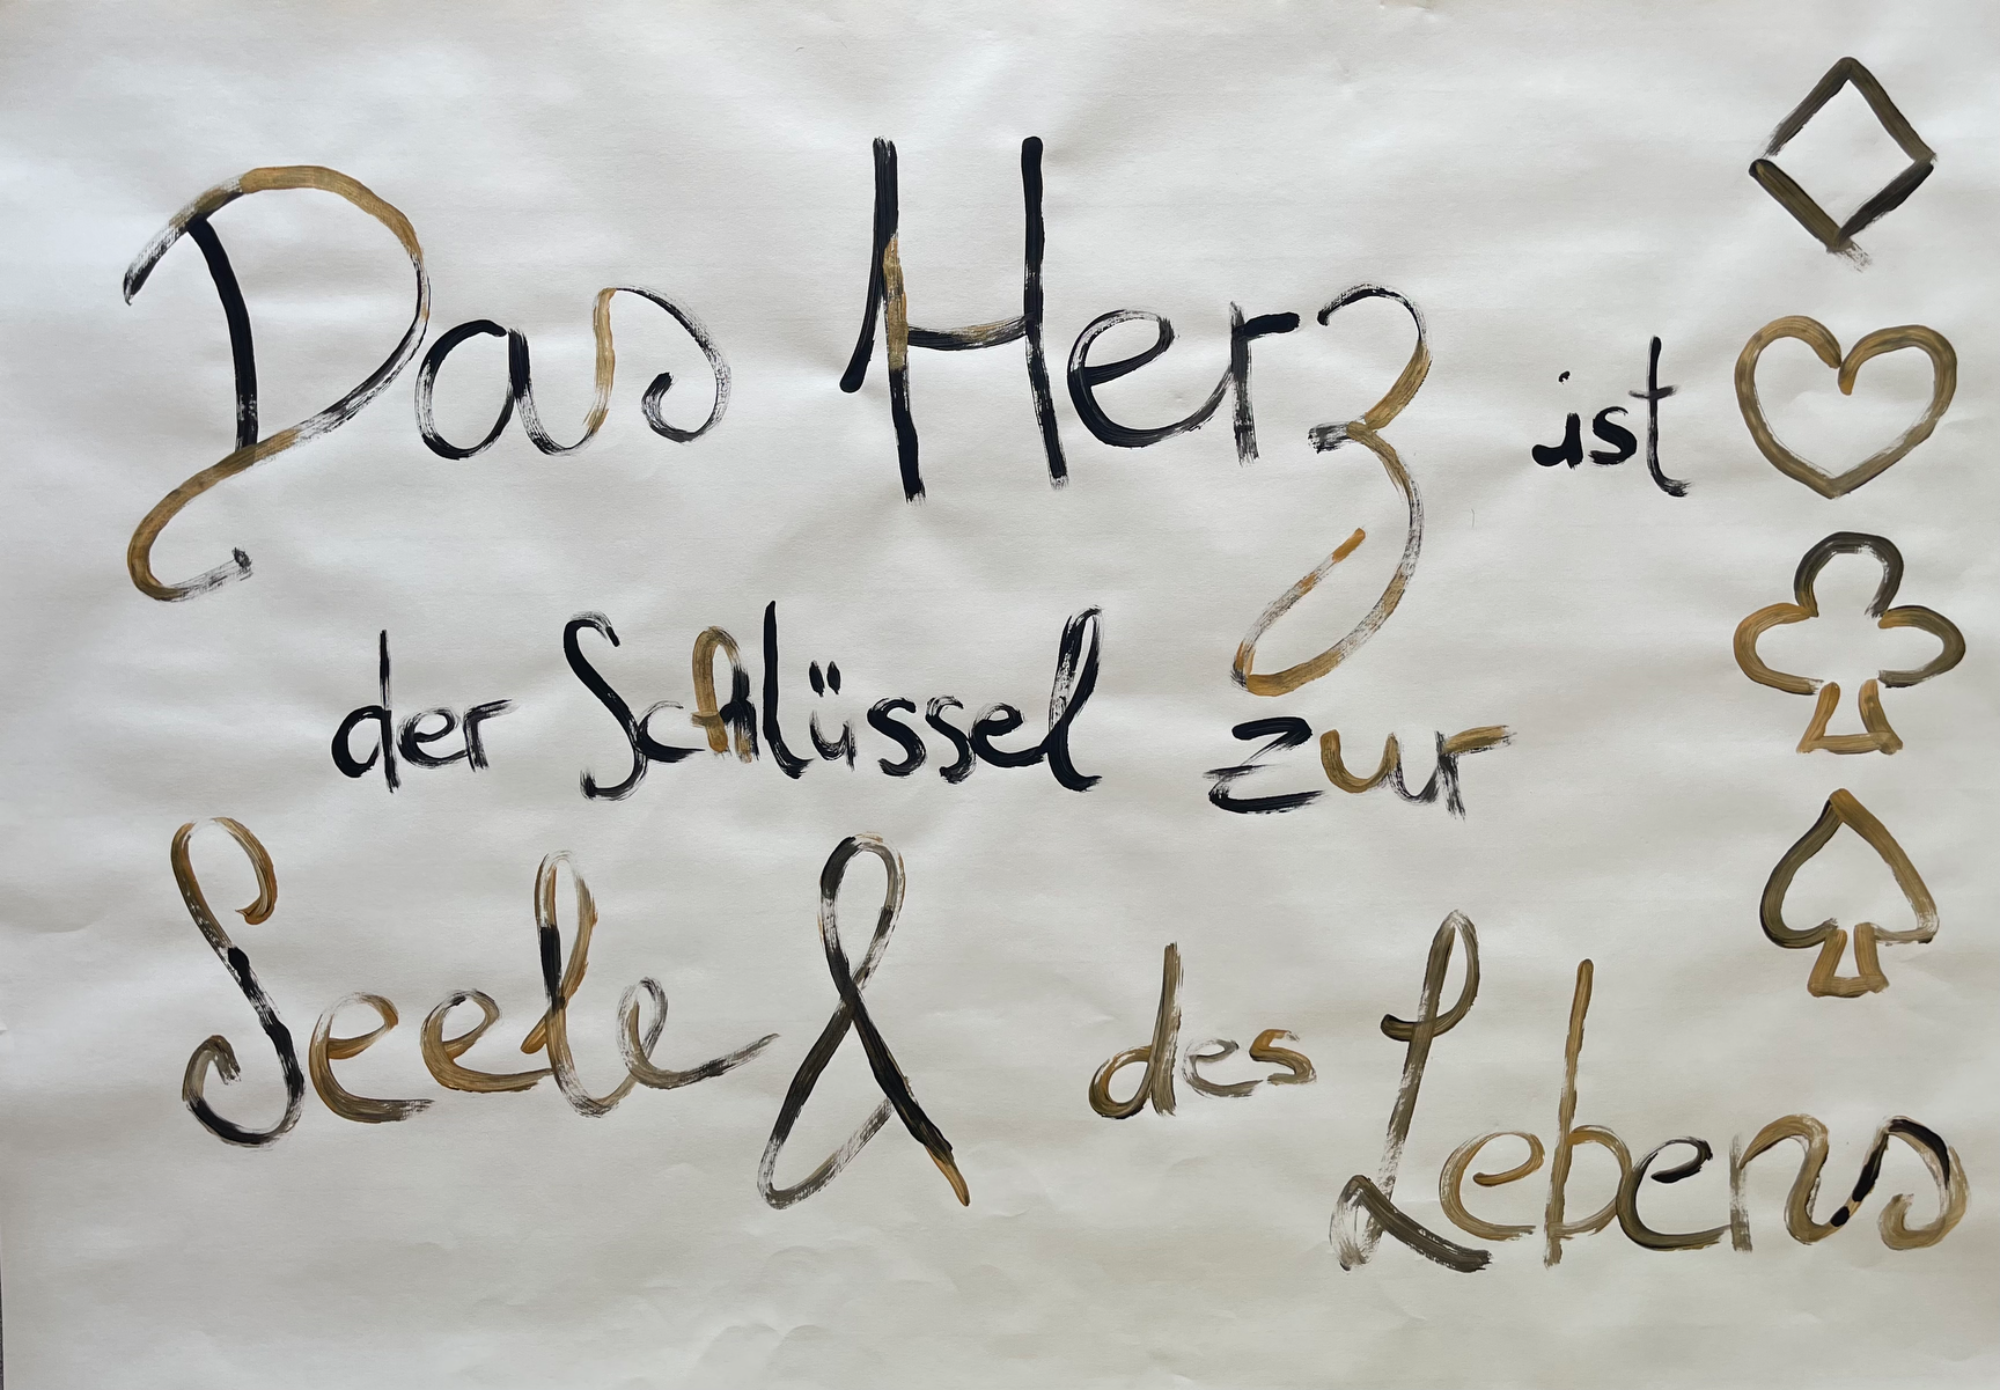 Das Herz ist
der Schlüssel zur
Seele & des Lebens